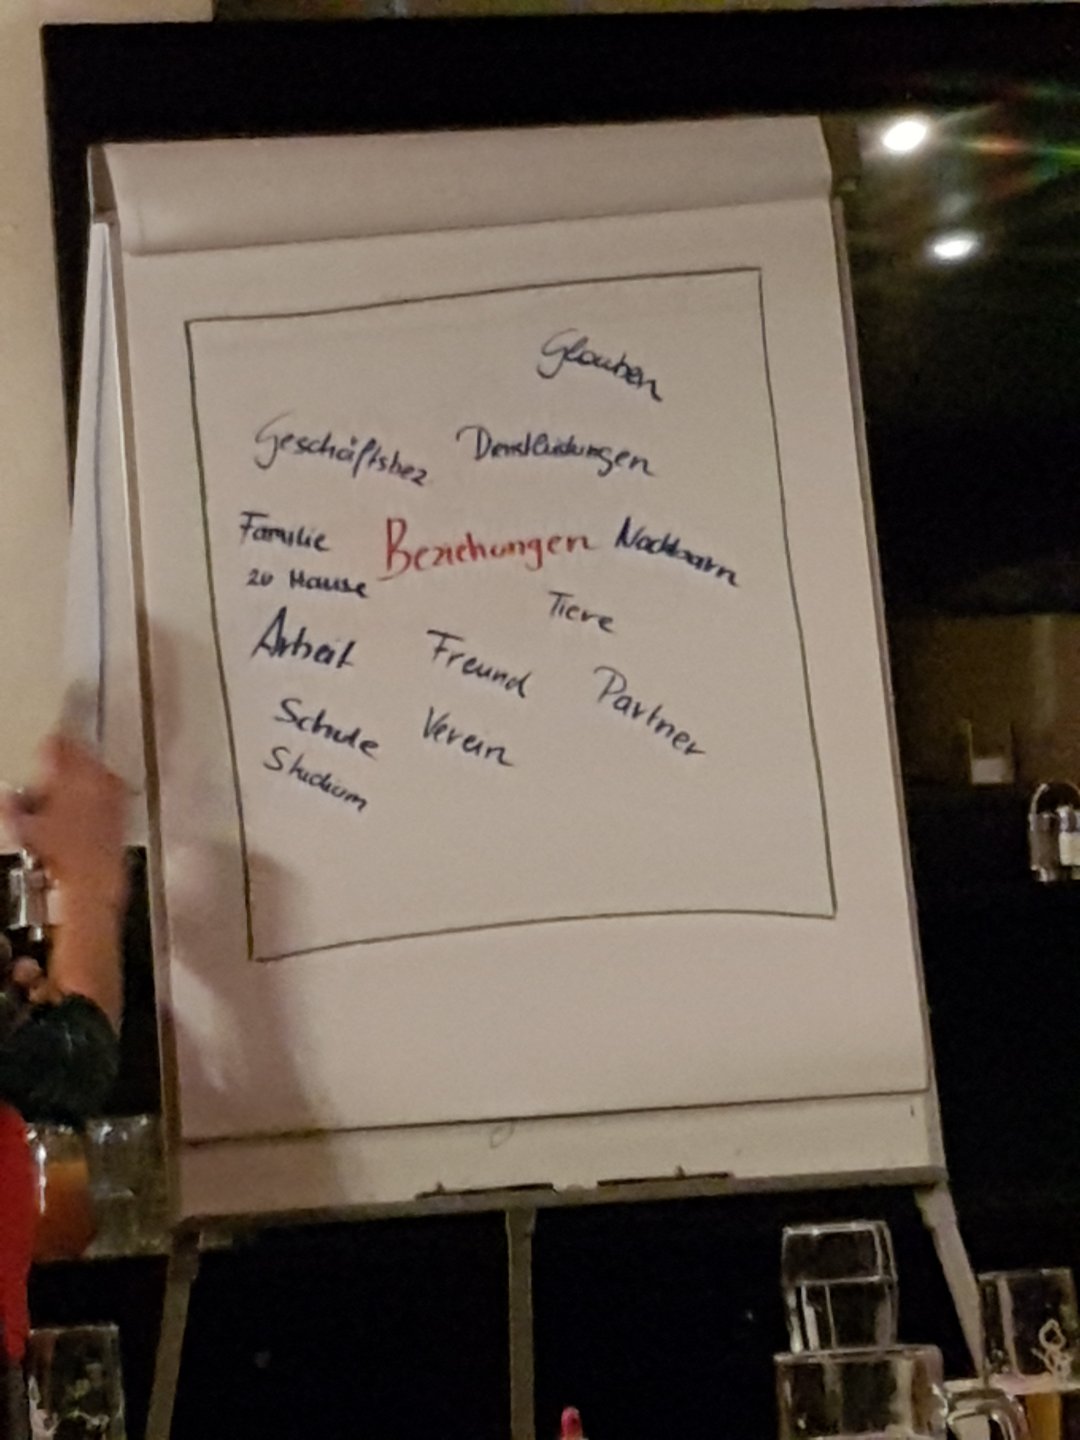 Glauben
Geschäftsbez Dienstleistungen
Familie Beziehungen Nachbarn
zu Hause
Tiere
Arbeit Freund Partner
Schule Verein
Studium